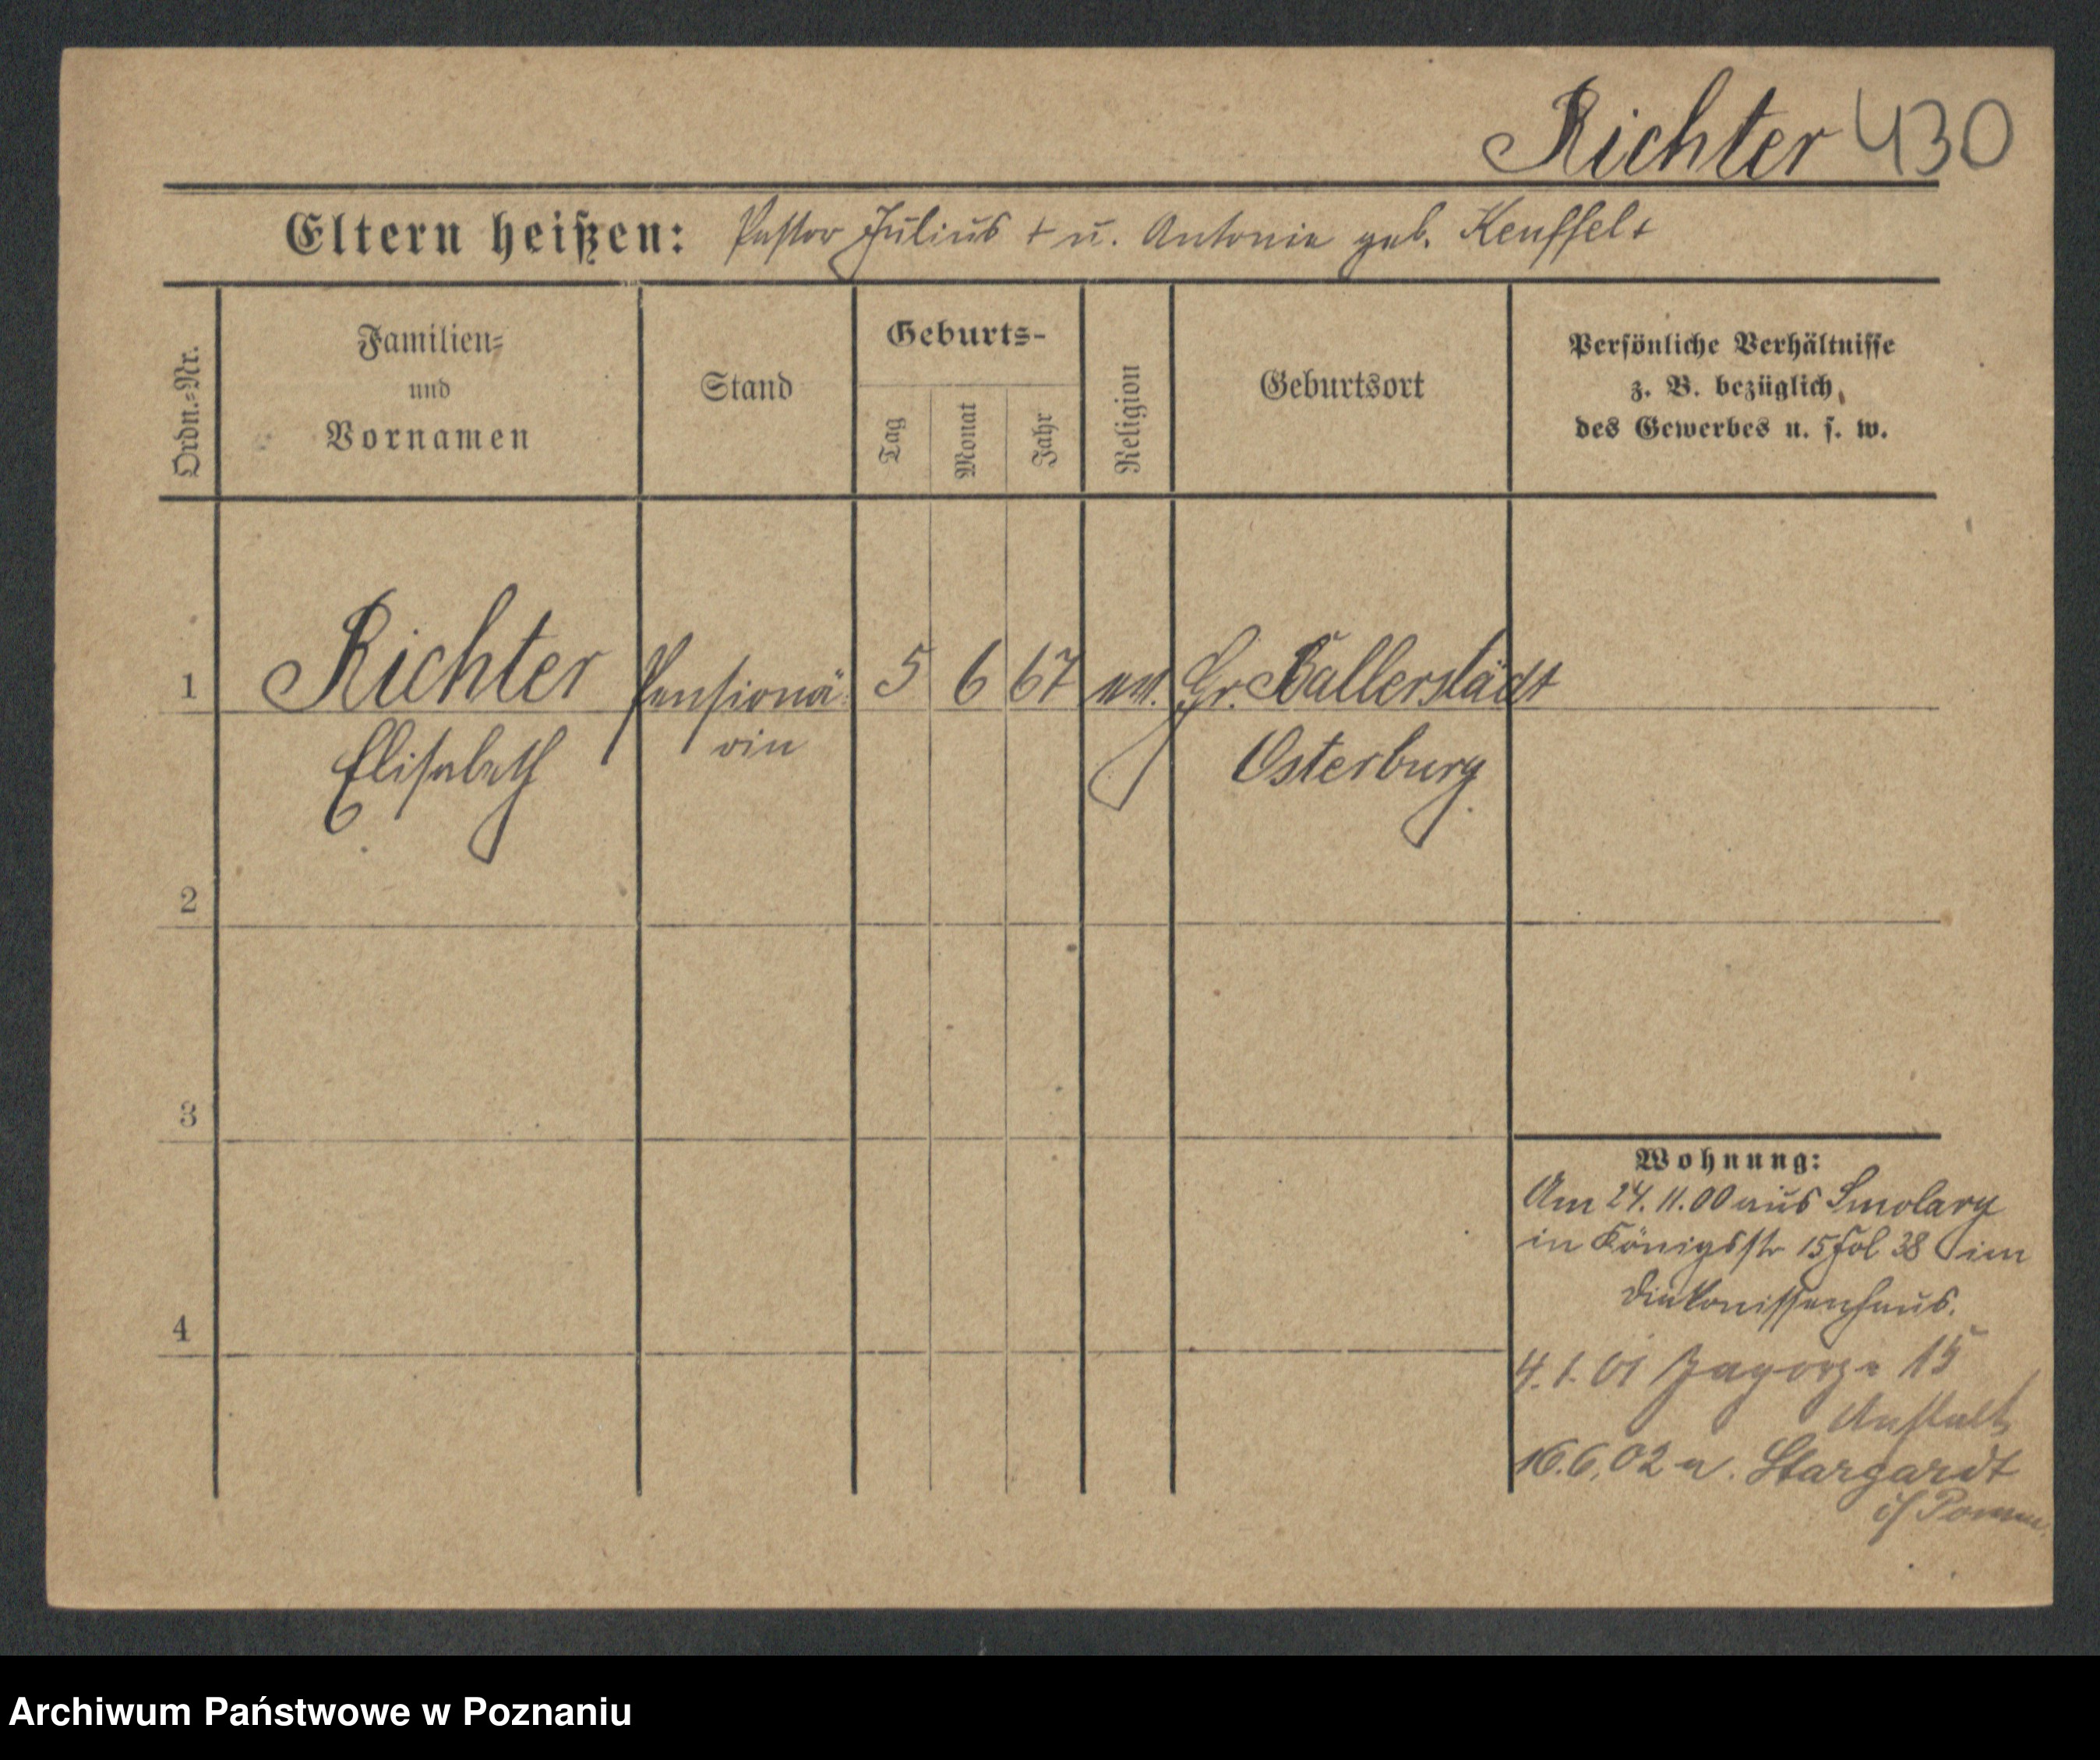 Richter 430
Eltern heißen: Pastor Julius + u. Antonie geb. Keuffel +
Ordn.=Nr.
Familien=
und
Vornamen
Stand
Geburts-
Tag
Monat
Jahr
Religion
Geburtsort
Persönliche Verhältnisse
z. B. bezüglich
des Gewerbes u. s. w.
1 Richter Pensionä- 5 6 67 ev. Gr. Ballerstädt
Elisabeth rin Osterburg
2
3
4
Wohnung:
Am 24.11.00 aus Smolary
in Königsstr 15 Fol 38 im
Diakonissenhaus.
4.1.01 Zagorze 15
Anstalt
16.6.02 n. Stargardt
i/ Pomm.
Archiwum Państwowe w Poznaniu